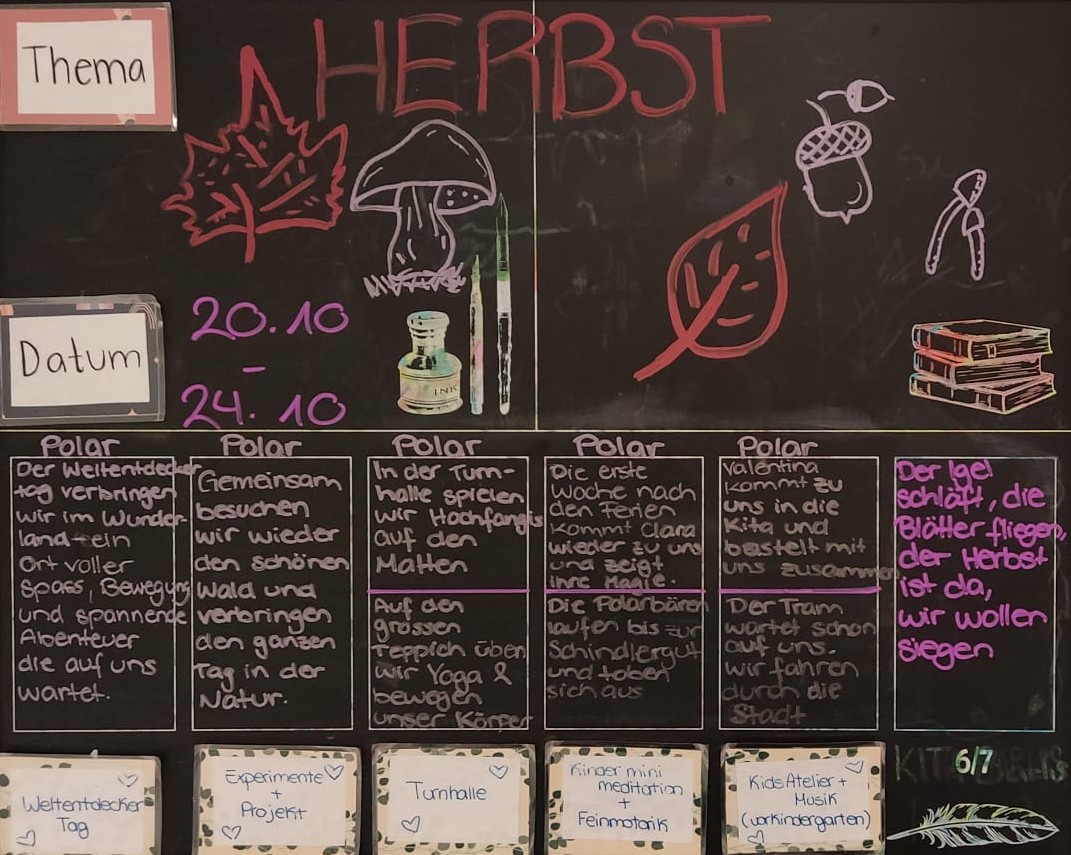 Thema
HERBST
Datum
20.10
-
24.10
INK
Polar
Der Weltentdecker
tag verbringen
wir im Wunder-
land-ein
Ort voller
Spass, Bewegung
und spannende
Abenteuer
die auf uns
wartet.
Weltentdecker
Tag
Polar
Gemeinsam
besuchen
wir wieder
den schönen
Wald und
verbringen
den ganzen
Tag in der
Natur.
Experimente
+
Projekt
Polar
In der Turn-
halle spielen
wir Hochfangis
auf den
Matten
Auf den
grossen
Teppich üben
wir Yoga &
bewegen
unser Körper
Turnhalle
Polar
Die erste
Woche nach
den Ferien
kommt Clara
wieder zu uns
und zeigt
ihre Magie.
Die Polarbären
laufen bis zur
Schindlergut
und toben
sich aus
Kinder mini
meditation
+
Feinmotorik
Polar
Valentina
kommt zu
uns in die
Kita und
bastelt mit
uns zusammen
Der Tram
wartet schon
auf uns.
wir fahren
durch die
Stadt
Kids Atelier +
Musik
(vorkindergarten)
Der Igel
schläft, die
Blätter fliegen,
der Herbst
ist da,
wir wollen
siegen
KITA
6/7